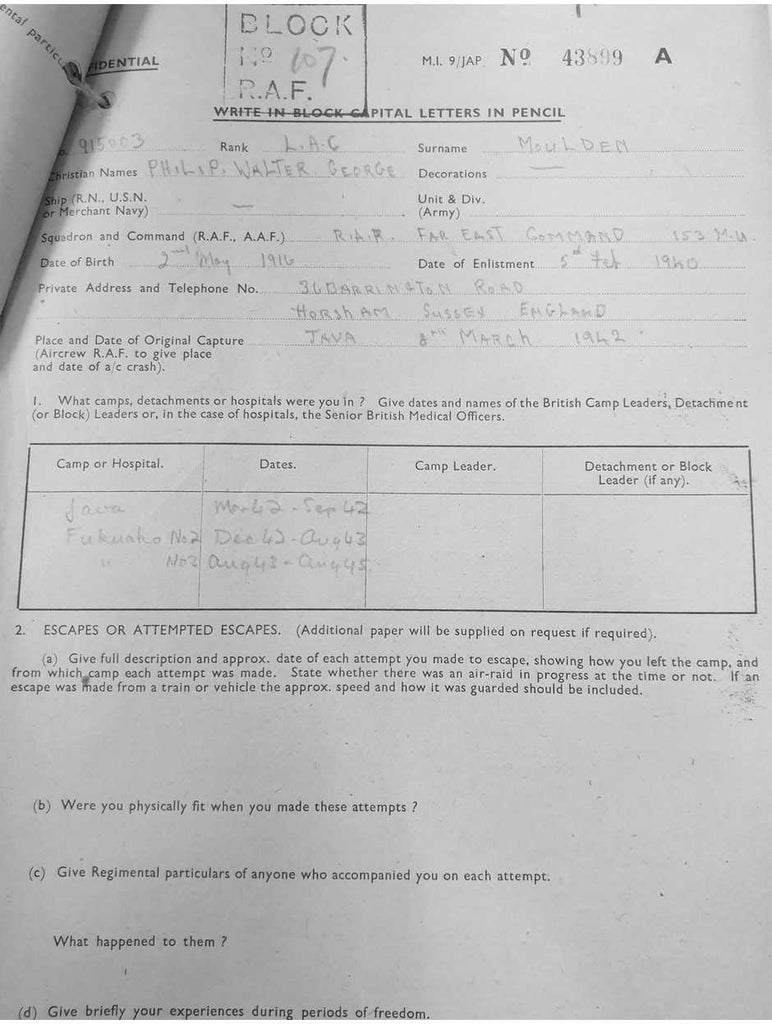 ental particu
BLOCK
IDENTIAL
No 107.
M.I. 9/JAP. No 43899 A
R.A.F.
WRITE IN BLOCK CAPITAL LETTERS IN PENCIL
o. 915003 Rank L.A.C Surname MOULDEN
Christian Names PHILIP. WALTER GEORGE Decorations —
Ship (R.N., U.S.N. Unit & Div.
or Merchant Navy) — (Army)
Squadron and Command (R.A.F., A.A.F.) R.A.F. FAR EAST COMMAND 153 M.U.
Date of Birth 2nd May 1916 Date of Enlistment 5th Feb 1940
Private Address and Telephone No. 36 BARRINGTON ROAD
HORSHAM SUSSEX ENGLAND
Place and Date of Original Capture JAVA 8TH MARCH 1942
(Aircrew R.A.F. to give place
and date of a/c crash).
1. What camps, detachments or hospitals were you in ? Give dates and names of the British Camp Leaders, Detachment
(or Block) Leaders or, in the case of hospitals, the Senior British Medical Officers.
Camp or Hospital. Dates. Camp Leader. Detachment or Block
Leader (if any).
Java Mar 42 - Sep 42
Fukuako No 2 Dec 42 - Aug 43
" No 3 Aug 43 - Aug 45.
2. ESCAPES OR ATTEMPTED ESCAPES. (Additional paper will be supplied on request if required).
(a) Give full description and approx. date of each attempt you made to escape, showing how you left the camp, and
from which camp each attempt was made. State whether there was an air-raid in progress at the time or not. If an
escape was made from a train or vehicle the approx. speed and how it was guarded should be included.
(b) Were you physically fit when you made these attempts ?
(c) Give Regimental particulars of anyone who accompanied you on each attempt.
What happened to them ?
(d) Give briefly your experiences during periods of freedom.